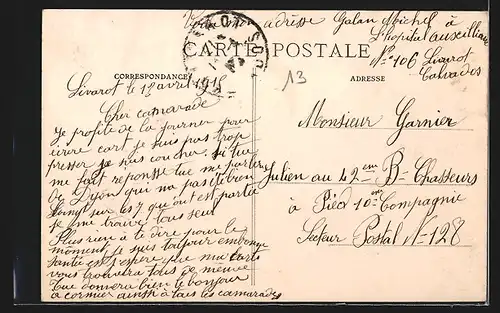 Voici mon adresse Galan Michel à
l'hopital auxcilliaire
N° 106 Livarot
Calvados
CARTE POSTALE
CORRESPONDANCE
ADRESSE
13
Livarot le 12 avril 1915
Cher camarade
Je profite de la journer pour
écrire cart je suis pas trop
presser je suis coucher si tu
me fait reponsse tu me parlera
de Dyon qui na pas
sur les 7 qui ont est partie
je me trouve tous seul
Plus rien à te dire pour le
moment je suis toujour en bonne
santée est j'espere que ma carte
vous trouvera tous de meme
Tout donnera bien le bonjour
à cormier ainsi à tous les camarades
Monsieur Garnier
Julien au 42 em B- Chasseurs
à Pied 10 em Compagnie
Secteur Postal N- 128